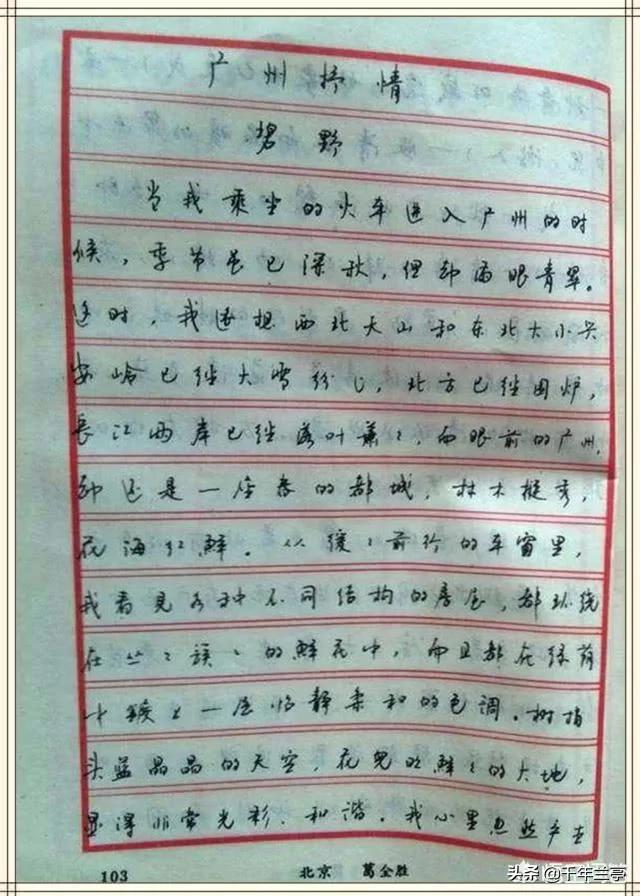 广州抒情
碧野
当我乘坐的火车进入广州的时
候，季节虽已深秋，但却满眼青翠。
这时，我遥想西北天山和东北大小兴
安岭已经大雪纷纷，北方已经围炉，
长江两岸已经落叶萧萧，而眼前的广州，
却还是一座春的都城，林木挺秀，
花海红鲜。从缓缓前行的车窗里，
我看见各种不同结构的房屋，都环绕
在丛丛簇簇的鲜花中，而且都在绿荫
中镀上一层恬静柔和的色调。树梢
头蓝晶晶的天空，花儿鲜鲜的大地，
显得非常光彩、和谐。我心里忽然产生
103 北京 葛全胜
头条@千年兰亭